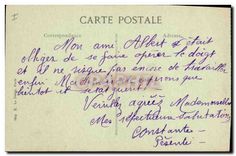 CARTE POSTALE
Correspondance
Adresse
Mon ami Albert était
obligé de se faire opérer le doigt
et il ne risque pas encore de travailler
enfin Mad espérons que
bientôt il
Veuillez agréez Mademoiselle
Mes respectueuses Salutations
Constante
Présente